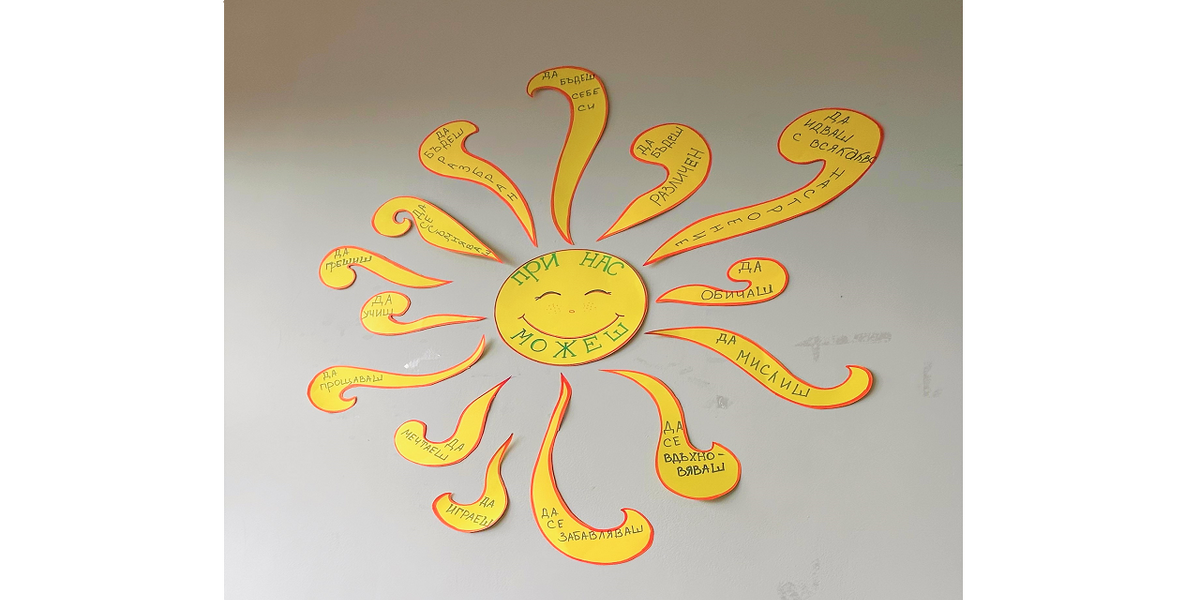 ПРИ НАС
МОЖЕШ
ДА
БЪДЕШ
СЕБЕ
СИ
ДА
БЪДЕШ
РАЗЛИЧЕН
ДА
ИДВАШ
С ВСЯКАКВО
НАСТРОЕНИЕ
ДА
ОБИЧАШ
ДА
МИСЛИШ
ДА
СЕ
ВДЪХНО-
ВЯВАШ
ДА
СЕ
ЗАБАВЛЯВАШ
ДА
ИГРАЕШ
ДА
МЕЧТАЕШ
ДА
ПРОЩАВАШ
ДА
УЧИШ
ДА
ГРЕШИШ
ДА
ДА
БЪДЕШ
РАЗБРАН